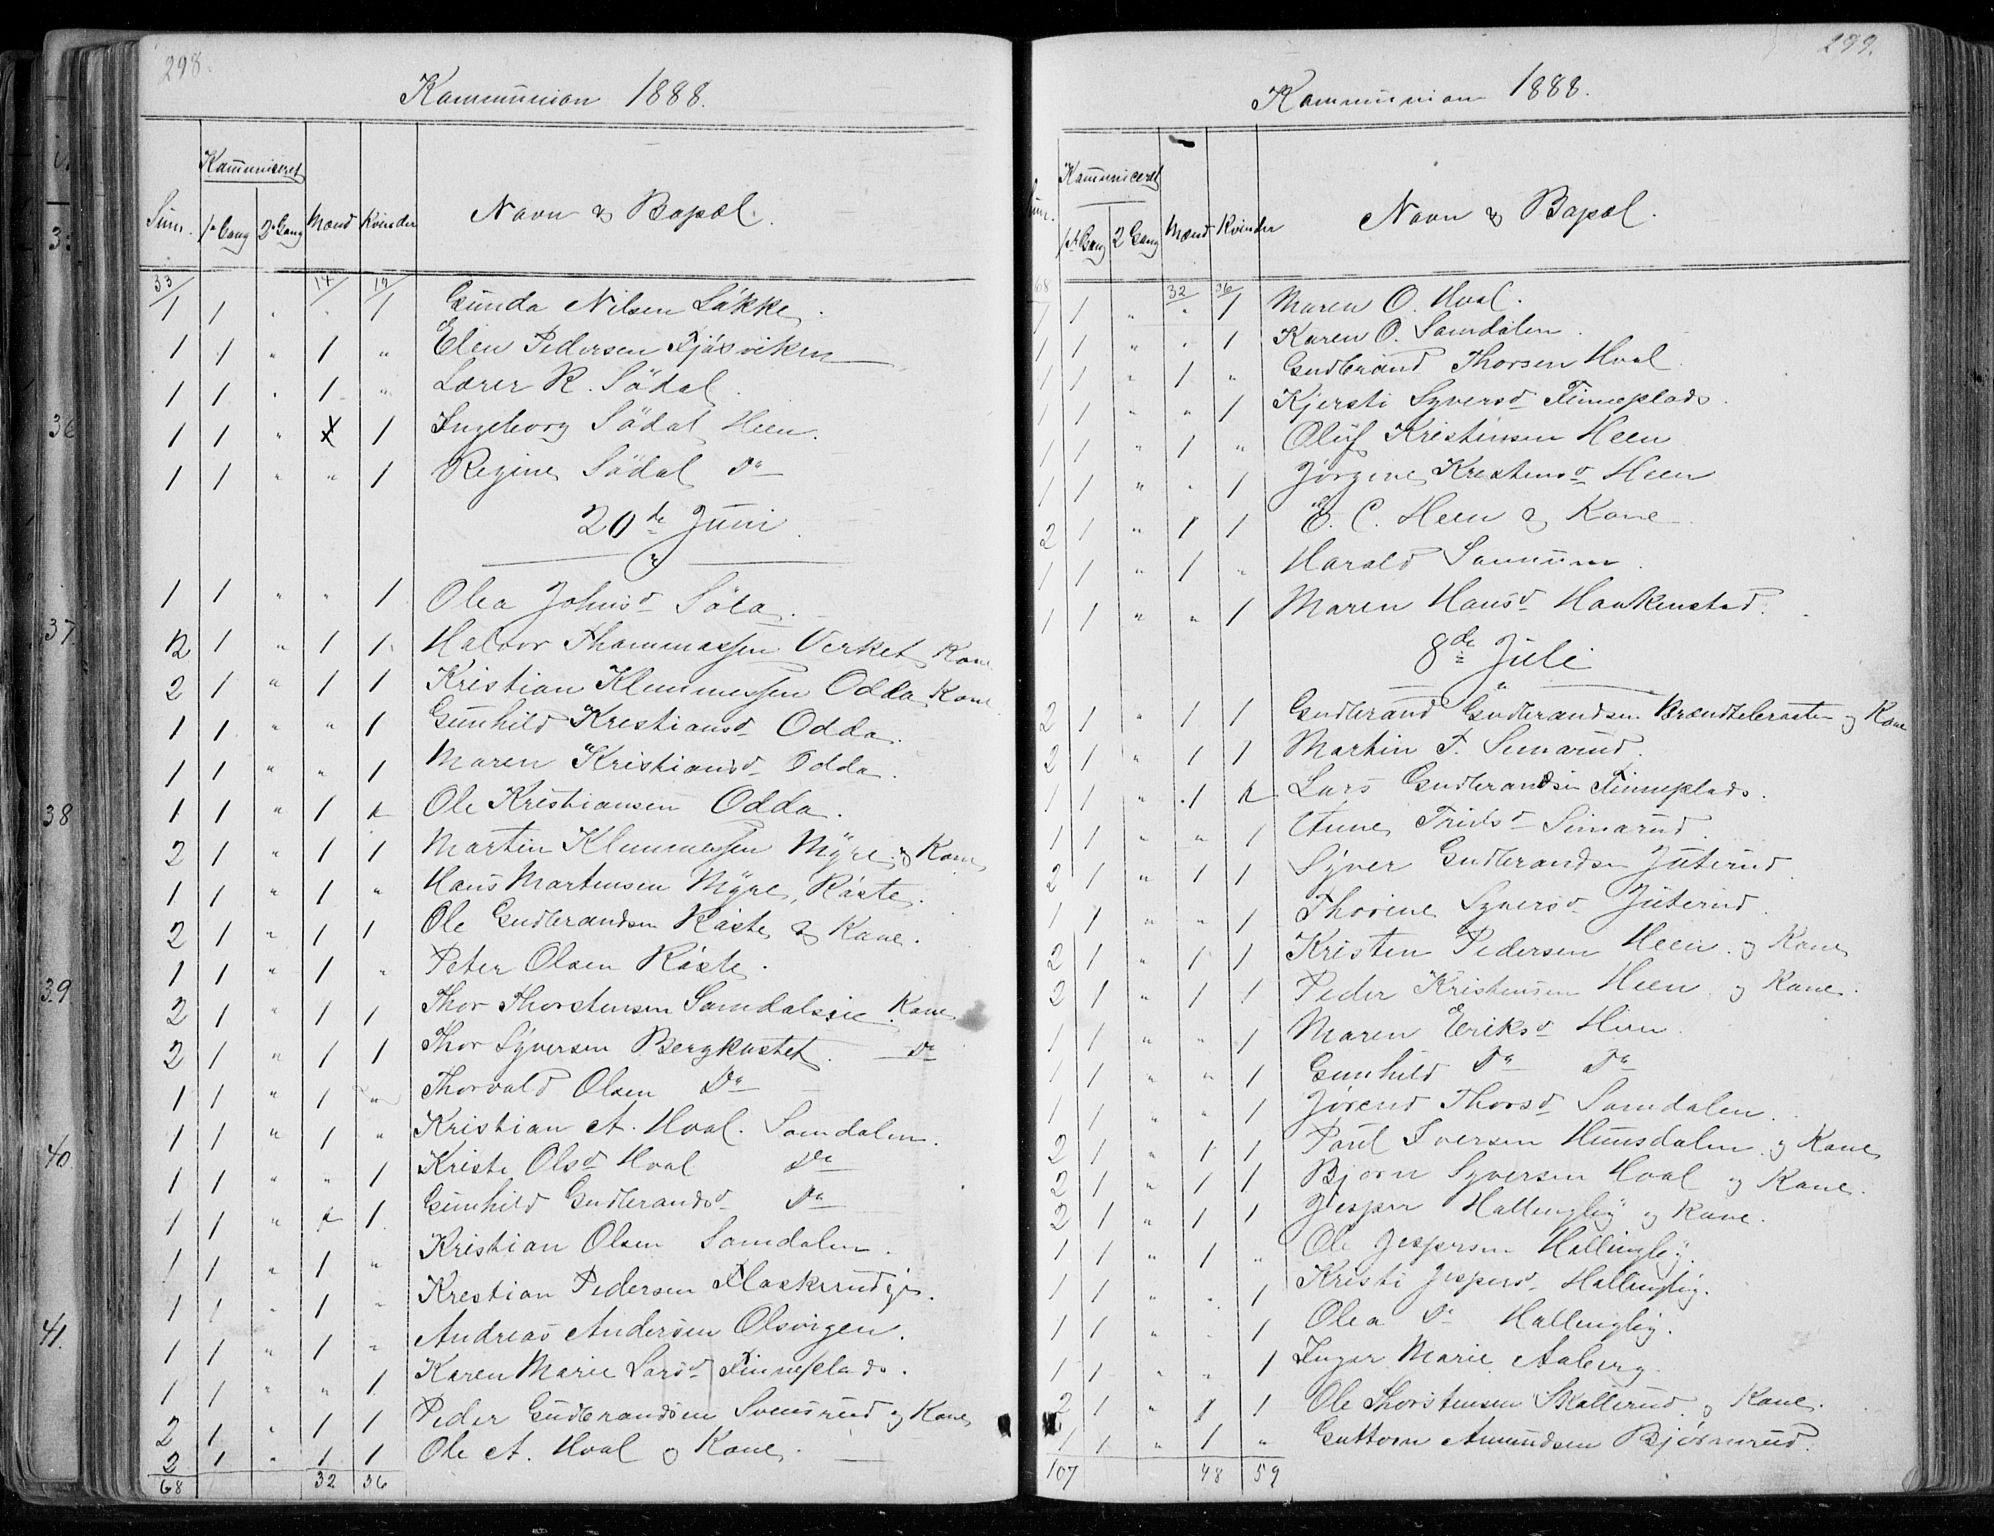 298.
Kommunion 1888.
Kommuniceret
Sum. 1ste Gang 2den Gang Mænd Kvinder Navn & Bopæl.
33 14 19
1 1 " " 1 Gunda Nilsen Løkke.
1 1 " 1 " Elen Pedersen Fjøsviken
1 1 " 1 " Lærer R. Sødal.
1 1 " 1 Ingeborg Sødal Heen.
1 1 " " 1 Regine Sødal Do
20de Juni.
1 1 " " 1 Olea Johnsd
2 1 " 1 1 Halvor Thommassen Verket Kone
2 1 " 1 1 Kristian Klemmessen Odda Kone
1 1 " " 1 Gunhild Krestiansd Odda.
1 1 " " 1 Maren Kristiansd Odda.
1 1 " 1 Ole Kristiansen Odda.
2 1 " 1 1 Martin Klemmessen Myre & Kone
1 1 " 1 " Hans Martensen Myre, Røste.
2 1 " 1 1 Ole Gudbrandsen Røste & Kone.
1 1 " 1 " Peter Olsen Røste.
2 1 " 1 1 Thor Thorstensen Kone
2 1 " 1 1 Thor Syversen Bergkastet. Do
1 1 " 1 " Thorvald Olsen Do
1 1 " 1 " Kristian A. Hval. Samdalen.
1 1 " " 1 Kristi Olsd Hval Do
1 1 " 1 Gunhild Gudbrandsd Do
1 1 " 1 " Kristian Olsen Samdalen.
1 1 " 1 " Krestian Pedersen
1 1 " 1 " Andreas Andersen Olsvigen.
1 1 " " 1 Karen Marie Larsd Finneplads.
2 1 " 1 1 Peder Gudbrandsen Svensrud og Kone
2 1 " 1 1 Ole A. Hval og Kone.
68 32 36
299.
Kommunion 1888.
Kommuniceret
Sum. 1ste Gang 2 Gang Mænd Kvinder Navn & Bopæl.
68 32 36
1 1 " " 1 Maren O. Hval.
1 1 " " 1 Karen O. Samdalen.
1 1 " 1 " Gudbrand Thorsen Hval
1 1 " " 1 Kjersti Syversd Finneplads.
1 1 " 1 " Oluf Kristensen Heen
1 1 " " 1 Jørgine Kristensd Heen
2 1 " 1 1 E. C. Heen & Kone
1 1 " 1 " Harald
1 1 " " 1 Maren Hansd Haakenstad.
8de Juli
2 1 " 1 1 Gudbrand Gudbrandsen Brændtebraaten og Kone
2 1 " 1 1 Martin F. Simarud.
1 1 " 1 Lars Gudbrandsen Finneplads.
1 1 " " 1 Anne Simarud.
2 1 " 1 1 Syver Gudbrandsen Juterud.
1 1 " " 1 Thorine Syversd Juterud.
2 1 " 1 1 Kristen Pedersen Heen. og Kone
2 1 " 1 1 Peder Kristensen Heen. og Kone.
1 1 " " 1 Maren Eriksd Heen.
1 1 " " 1 Gunhild Do Do
1 1 " " 1 Jørend Thorsd Samdalen.
2 1 " 1 1 Paul Iversen Hunsdalen. og Kone
2 1 " 1 1 Bjørn Syversen Hval og Kone.
2 1 " 1 1 Jesper Hallenglij og Kone.
1 1 " 1 " Ole Jespersen Hallinglij.
1 1 " " 1 Kristi Jespersd Hallinglij.
1 1 " " 1 Olea Do Hallenglij.
1 1 " " 1 Inger Marie Aaberg.
2 1 " 1 1 Ole Thorstensen Skollerud. og Kone.
1 1 " 1 " Guttorm Amundsen Bjørnerud.
107 48 59
36
37.
38
39.
40.
41.